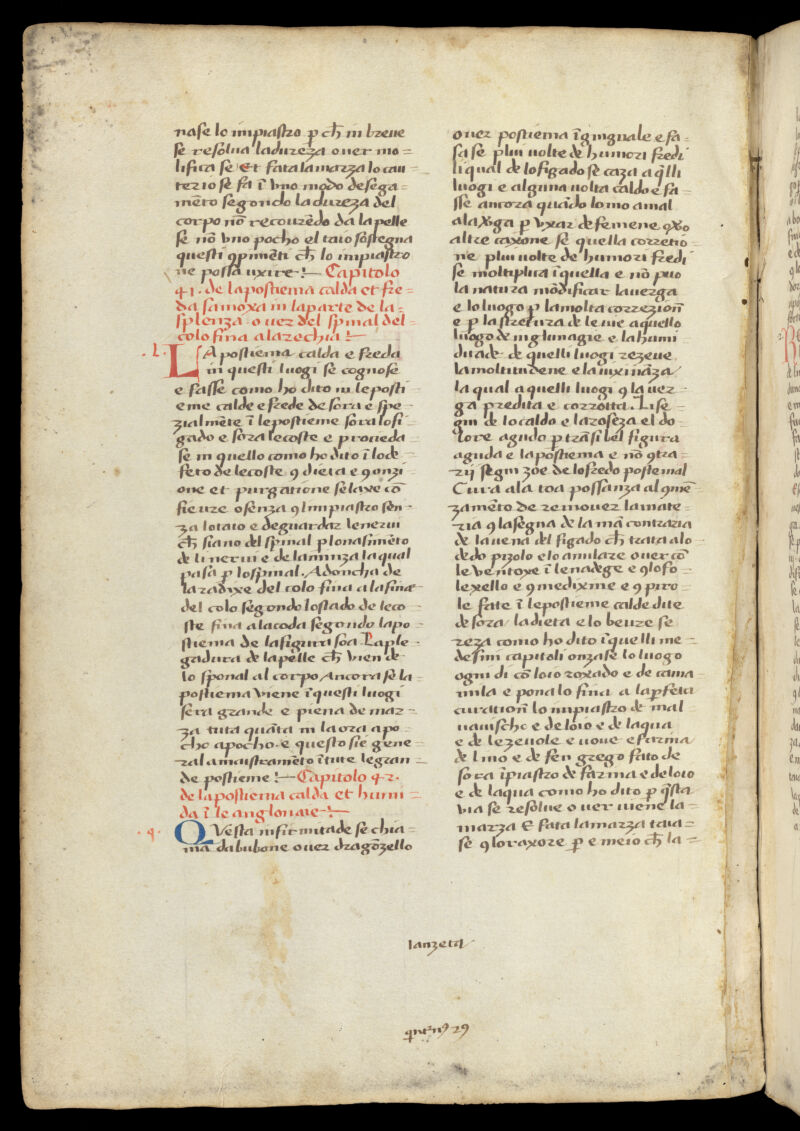 nase lo impiastro p ch̄ in breue
se resolua la dureza ouer mo=
lifica se Et fata la marza lo cau
terio se fa ī vno modo de sega=
mēto segondo la dureza del
corpo nō recouredo da la pelle
se nō vno pocho el taio sostegna
questi ch̄ lo impiastro
ne possa uxire Capitolo
41. de la postiema calda et fre=
da samoxa in la parte de la
splenza ouer del spinal del
colo fina ala rechia
.l. LA postiema calda e freda
in questi luogi se cognose
e fasse como ho dito in le posti
eme calde e frede de sora e spe=
zialmēte ī le postieme sora lo fi=
gado e sora le coste e procieda
se in quello como ho dito ī lo de
feto de le coste 9 dieta e 9onzi
one et purgatione selaxe cō
sieuze o senza 9 lnpiastro sen=
za lo taio e de guardar le nerui
ch̄ siano del spinal p lo nasimēto
de li nerui e de la minza la qual
pasa p lo spinal. Adoncha de
la radixe del colo fina a la fina
del colo segondo lo stado de le co=
ste fina ala coda segondo la po=
stiema de la figura soa La ple=
gadura de la pelle ch̄ vien de
lo sponal al corpo Ancora se la
postiema viene ī questi luogi
sera grande e piena de mar=
za tuta quāta in la ora apo=
cho apocho. e questo sie gene
ral amaistramēto ī tute le gran=
de postieme Capitolo 42.
de la postiema calda et humi=
da ī le anglonaie
.q. QVesta infirmitade se chia=
ma dabubone ouer dragōzello
ouer postiema ī gingnale e fa=
sa se plui uolte de humori fredi
li qual de lo figado se caza a q̄lli
luogi e alguna uolta caldo e fa=
sse ancora quādo lo mo a mal
ala x̄ga p vxar de femene
altre caxone se quella corretio=
ne plui uolte de humori fredi
se moltiplica ī quella e nō puo
la natura mōdificar la uerga
e lo luogo p la molta correzion̄
e p la stretura de le uie aquello
luogo de inglunagie e la humi
ditade de quelli luogi rezeue
la moltitudene e la uxinaza
la qual a quelli luogi 9 la uer=
ga predita e corrotta. Li se=
gni de lo caldo e la roseza el do=
lore agudo p trāsibel figura
aguda e la postiema e nō 9tra=
rii segni zoe de lo fredo postemal
Cura ala toa possanza al 9mē=
zamēto de remouer la mate=
ria 9 la segna de la mā contraria
de la uena del figado ch̄ trata a lo
dedo pizolo e lo anulare ouer cō
le ventoxe ī le nadege e 9 lo fo=
lexello e 9 medixme e 9 piro=
le fate ī le postieme calde dite
de sora / la dieta e lo beuze se=
reza como ho dito ī quelli me=
desimi capitoli onzase lo luogo
ogni di cō loio roxado e de cama
mila e pona lo fina a la pfeta
curation̄ lo impiastro de mal
uauischo e de loio e de laqua
e de lezeuole e uoue e farina
de lino e de fen grego fato de
sora īpiastro de farina e de loio
e de laqua como ho dito p q̄sta
via se resolue ouer uiene la=
marza E fata la marza taia=
se 9 lo raxore p e meio ch̄ la=
lanzeta
29